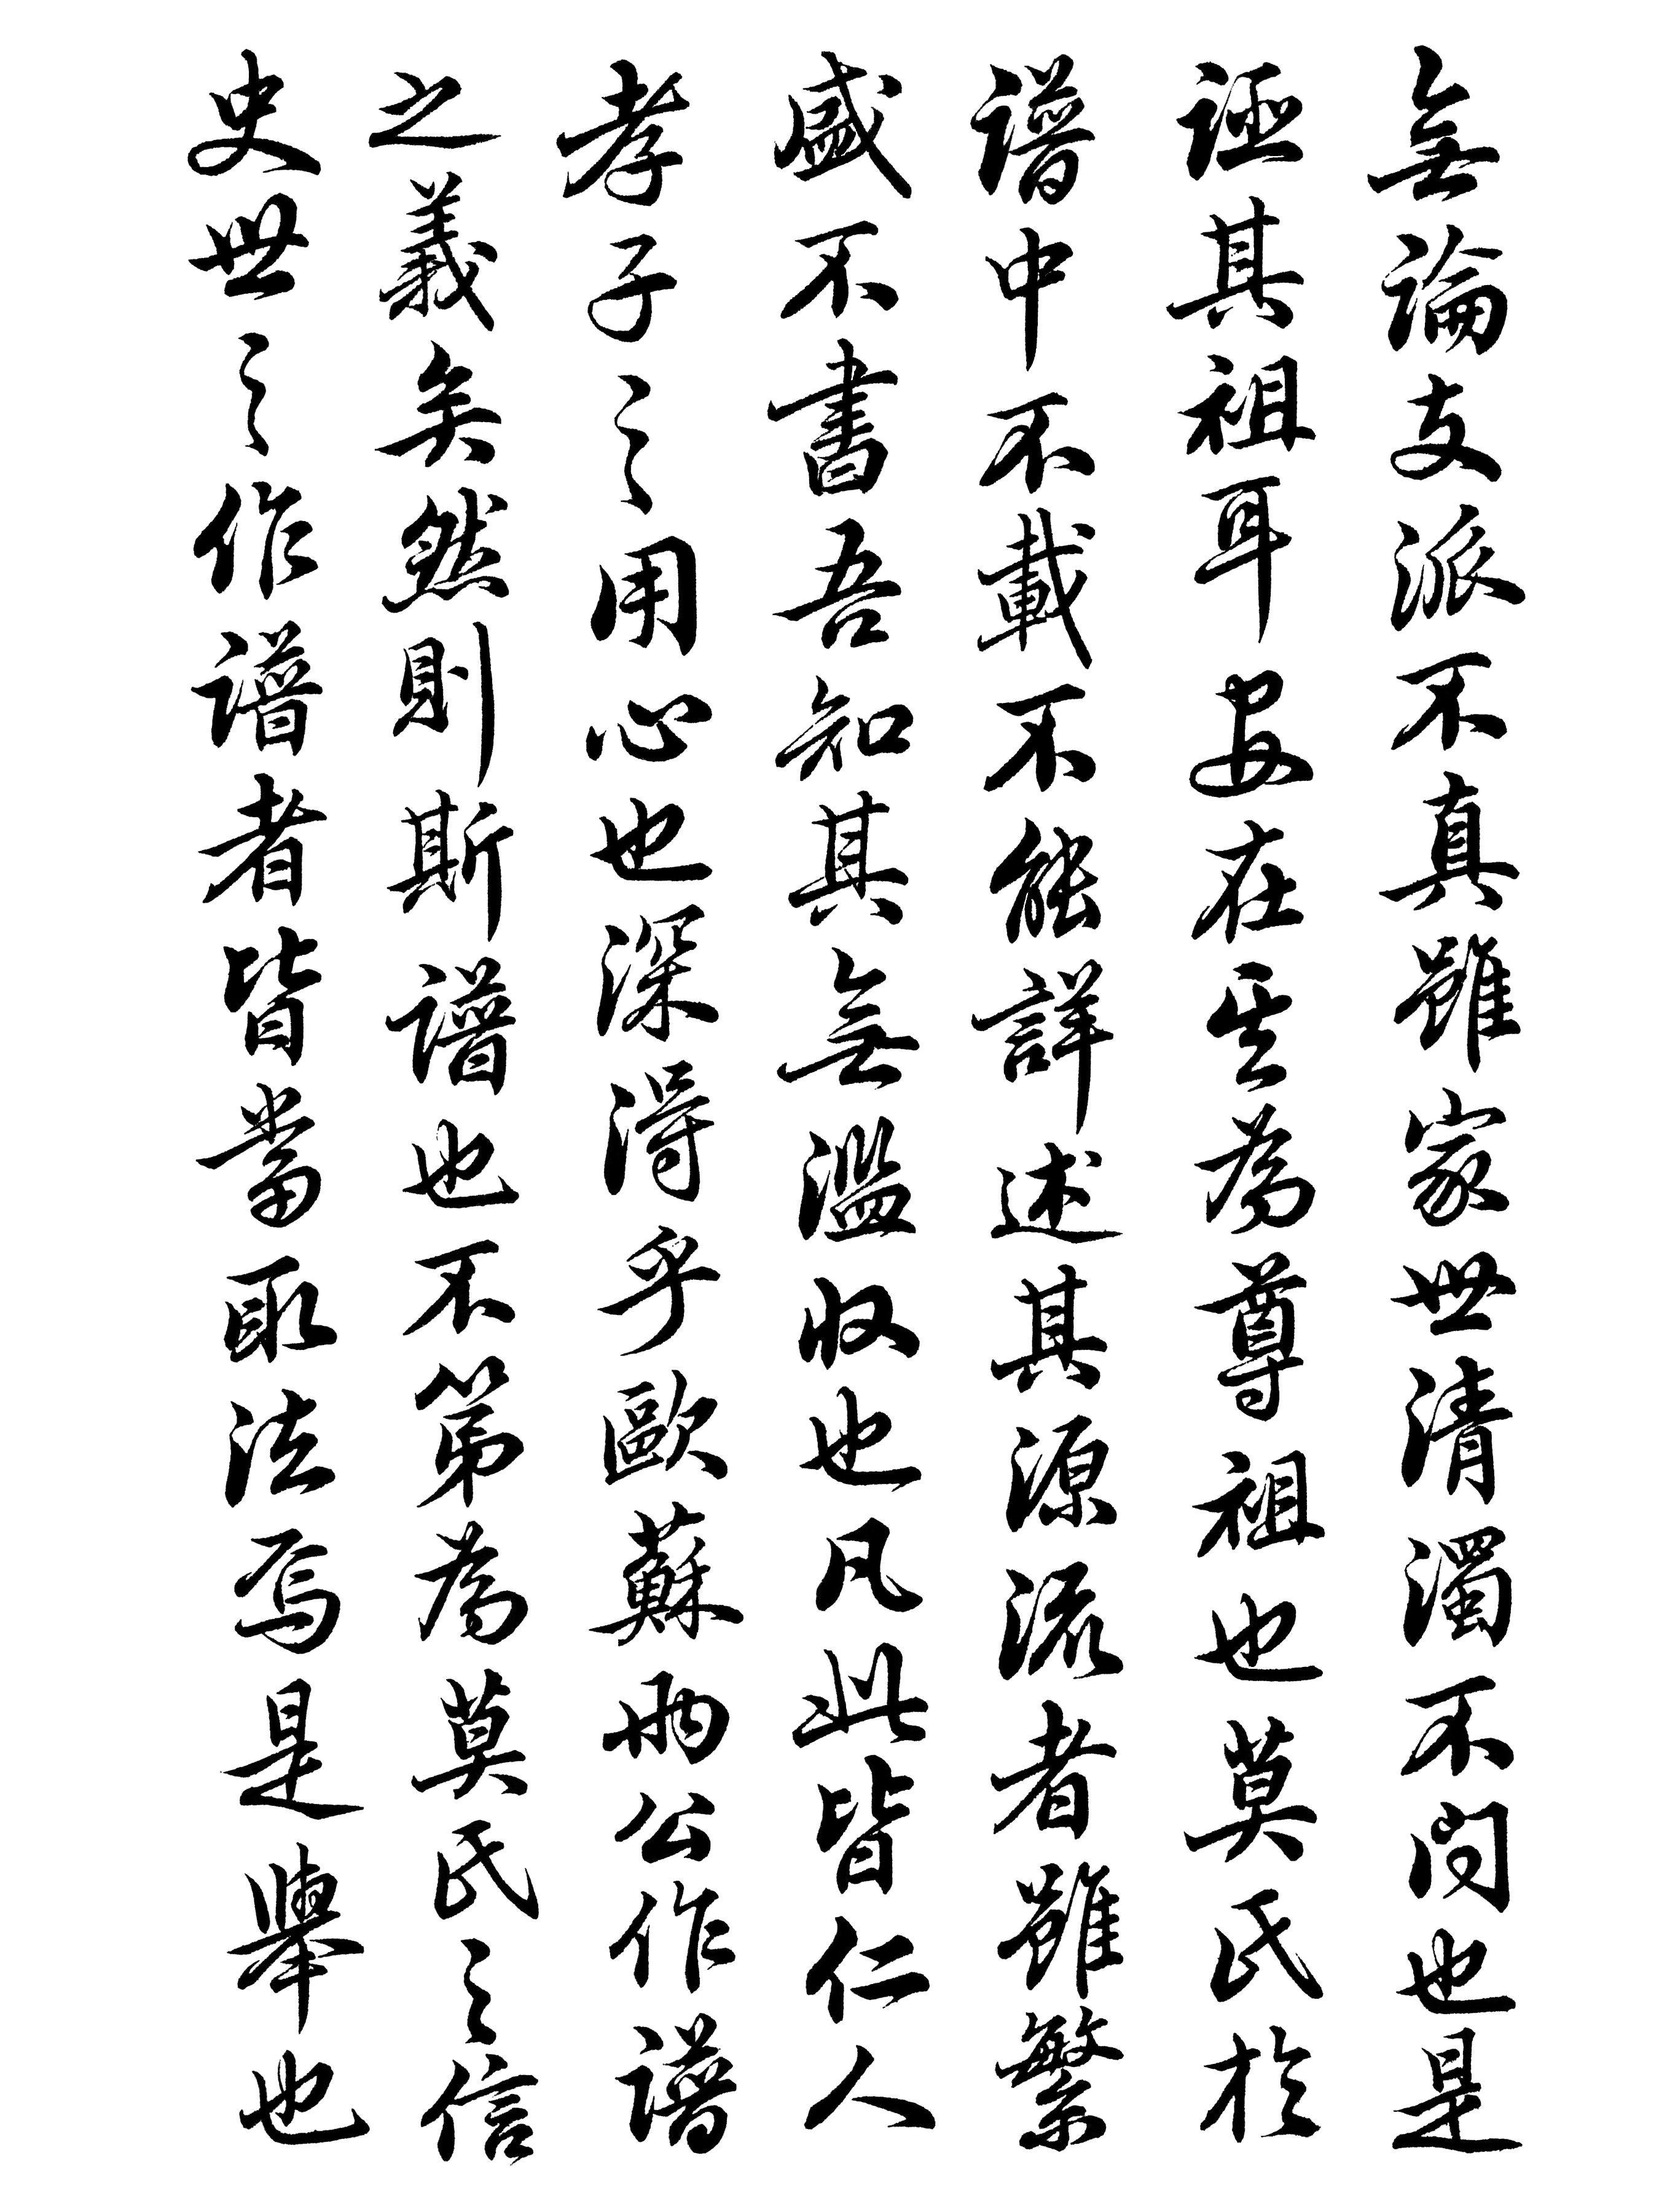 無論支派不真雖家世清濁不問也是
誣其祖耳安在其為尊祖也莫氏於
譜中不載不能詳述其源流者雖繁
盛不書吾知其無濫收也凡此皆仁人
孝子之用心也深得乎歐蘇兩公作譜
之義矣然則斯譜也不第為莫氏之信
史世之作譜者皆當取法焉是舉也